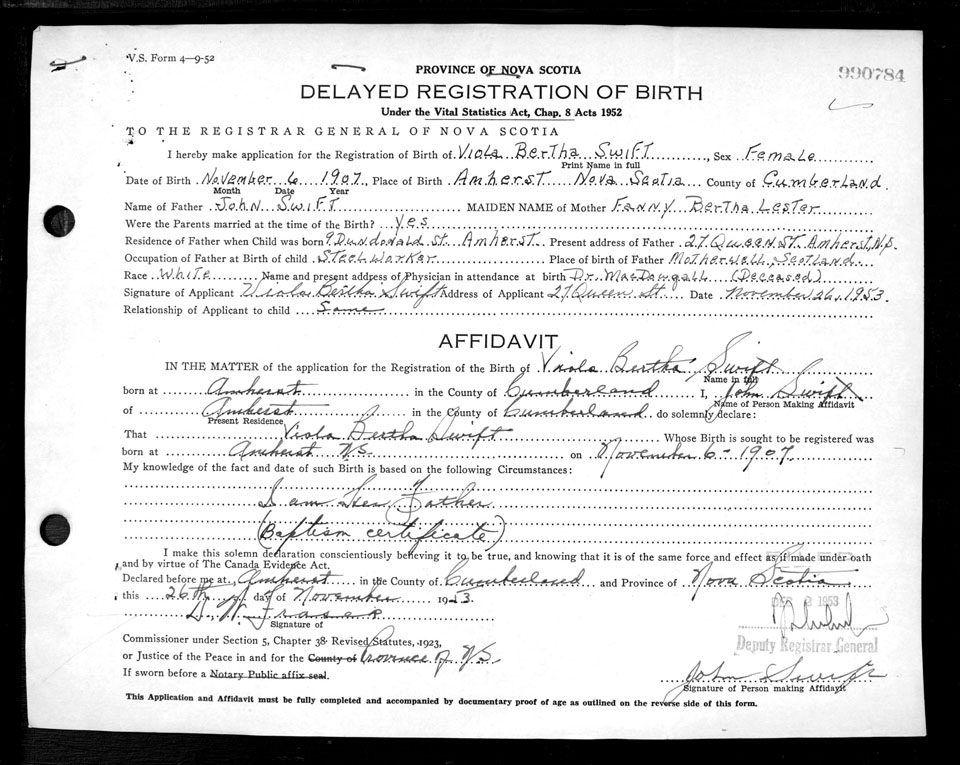 V.S. Form 4—9-52
990784
PROVINCE OF NOVA SCOTIA
DELAYED REGISTRATION OF BIRTH
Under the Vital Statistics Act, Chap. 8 Acts 1952
TO THE REGISTRAR GENERAL OF NOVA SCOTIA
I hereby make application for the Registration of Birth of Viola Bertha Swift, Sex Female
Print Name in full
Date of Birth November 6 1907 Place of Birth Amherst Nova Scotia County of Cumberland
Month Date Year
Name of Father John Swift MAIDEN NAME of Mother Fanny Bertha Lester
Were the Parents married at the time of the Birth? Yes
Residence of Father when Child was born 9 Dundonald St. Amherst. Present address of Father 27 Queen St. Amherst, N.S.
Occupation of Father at Birth of child Steelworker Place of birth of Father Motherwell, Scotland
Race White Name and present address of Physician in attendance at birth Dr. MacDougall (Deceased)
Signature of Applicant Viola Bertha Swift Address of Applicant 27 Queen St. Date November 26, 1953.
Relationship of Applicant to child Same
AFFIDAVIT
IN THE MATTER of the application for the Registration of the Birth of Viola Bertha Swift
Name in full
born at Amherst in the County of Cumberland I, John Swift
Name of Person Making Affidavit
of Amherst in the County of Cumberland do solemnly declare:
Present Residence
That Viola Bertha Swift Whose Birth is sought to be registered was
born at Amherst N.S. on November 6 - 1907.
My knowledge of the fact and date of such Birth is based on the following Circumstances:
I am Her Father
(Baptism certificate)
I make this solemn declaration conscientiously believing it to be true, and knowing that it is of the same force and effect as if made under oath
and by virtue of The Canada Evidence Act.
Declared before me at Amherst in the County of Cumberland and Province of Nova Scotia
this 26th day of November 1953
DEC 2 1953
D. W. Fraser
Signature of
Deputy Registrar General
Commissioner under Section 5, Chapter 38 Revised Statutes, 1923,
or Justice of the Peace in and for the County of Province of N.S.
If sworn before a Notary Public affix seal.
John Swift
Signature of Person making Affidavit
This Application and Affidavit must be fully completed and accompanied by documentary proof of age as outlined on the reverse side of this form.